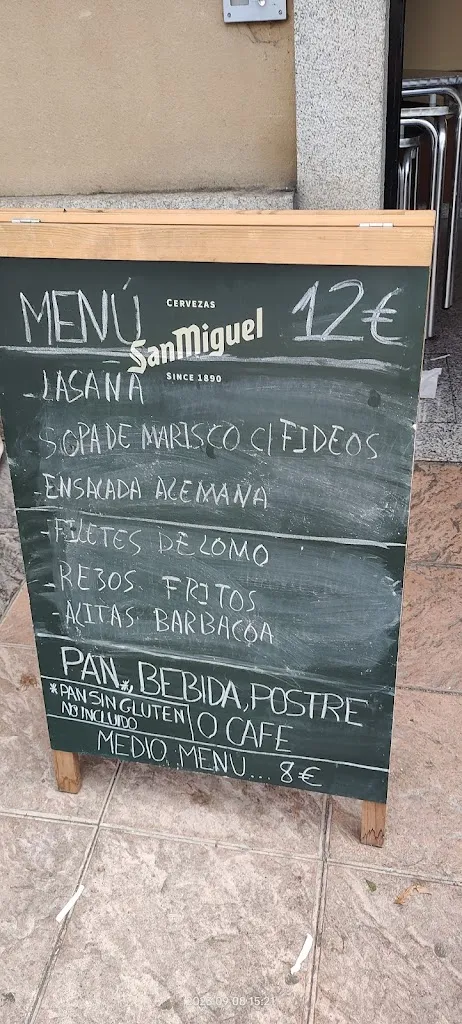 MENÚ CERVEZAS San Miguel SINCE 1890 12€
-LASAÑA
SOPA DE MARISCO C/ FIDEOS
-ENSALADA ALEMANA
-FILETES DE LOMO
-REJOS FRITOS
ALITAS BARBACOA
PAN*, BEBIDA, POSTRE
O CAFE
*PAN SIN GLUTEN
NO INCLUIDO
MEDIO MENU... 8€